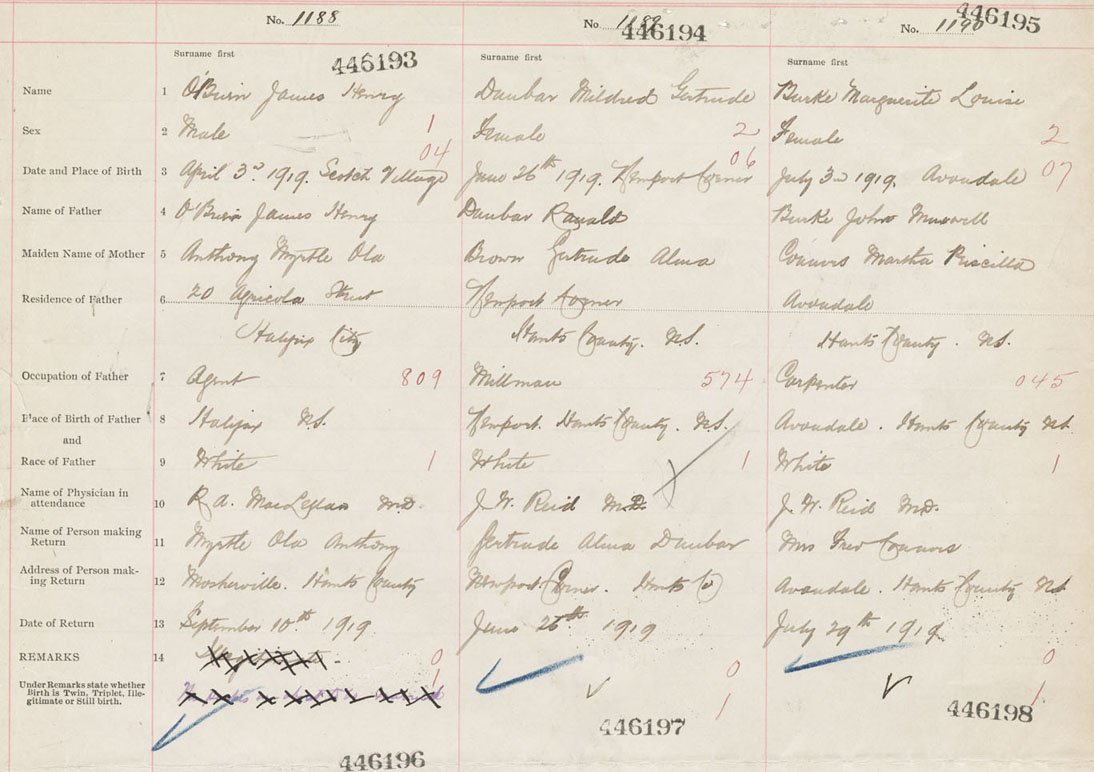 No. 1188
No. 1189
No. 1190
446193
446194
446195
Surname first
Surname first
Surname first
Name 1 O'Brien James Henry
Dunbar Mildred Gertrude
Burke Marguerite Louise
Sex 2 Male 1
Female 2
Female 2
04
06
07
Date and Place of Birth 3 April 3rd 1919. Scotch Village
June 26th 1919. Newport Corner
July 3rd 1919. Avondale
Name of Father 4 O'Brien James Henry
Dunbar Ranald
Burke John Maxwell
Maiden Name of Mother 5 Anthony Myrtle Ola
Brown Gertrude Alma
Connors Martha Priscilla
Residence of Father 6 20 Agricola Street
Newport Corner
Avondale
Halifax City
Hants County. N.S.
Hants County. N.S.
Occupation of Father 7 Agent 809
Millman 574
Carpenter 045
Place of Birth of Father 8 Halifax N.S.
Newport. Hants County. N.S.
Avondale. Hants County N.S.
and
Race of Father 9 White 1
White 1
White 1
Name of Physician in
attendance 10 R. A. MacLellan M.D.
J. W. Reid M.D.
J. W. Reid M.D.
Name of Person making
Return 11 Myrtle Ola Anthony
Gertrude Alma Dunbar
Mrs Connors
Address of Person mak-
ing Return 12 Mosherville. Hants County
Newport Corner. Hants Co
Avondale. Hants County N.S.
Date of Return 13 September 10th 1919
June 26th 1919
July 29th 1919
REMARKS 14
0
0
0
Under Remarks state whether
Birth is Twin, Triplet, Ille-
gitimate or Still birth.
1
1
1
446196
446197
446198